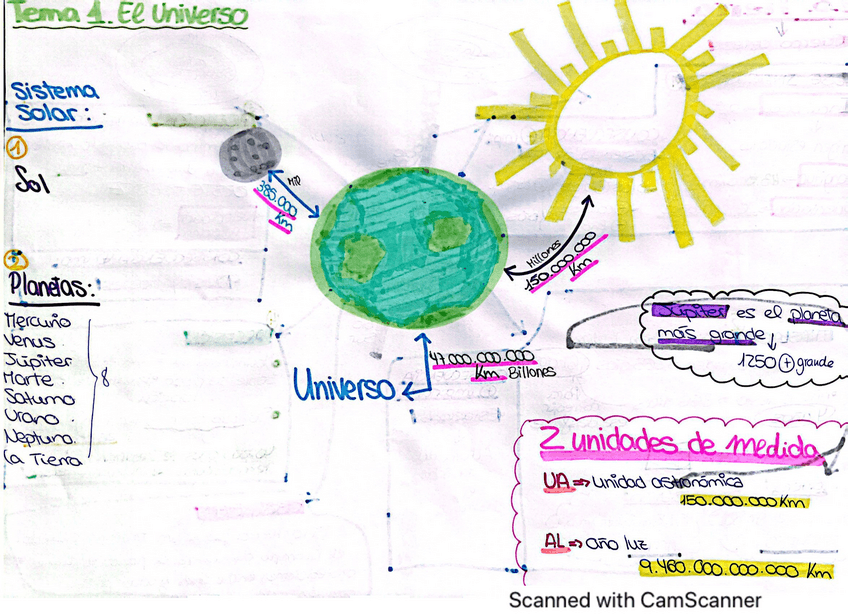 Tema 1. El Universo
Sistema
Solar:
1
Sol
2
Planetas:
Mercurio
Venus
Júpiter
Marte
Saturno
Urano
Neptuno
La Tierra
8
Mil
385.000
Km
Millones
150.000.000
Km
47.000.000.000
Km Billones
Universo
Júpiter es el planeta
más grande
1250 + grande
2 unidades de medida
UA => Unidad astronómica
150.000.000 Km
AL => año luz
9.460.000.000.000 Km
Scanned with CamScanner